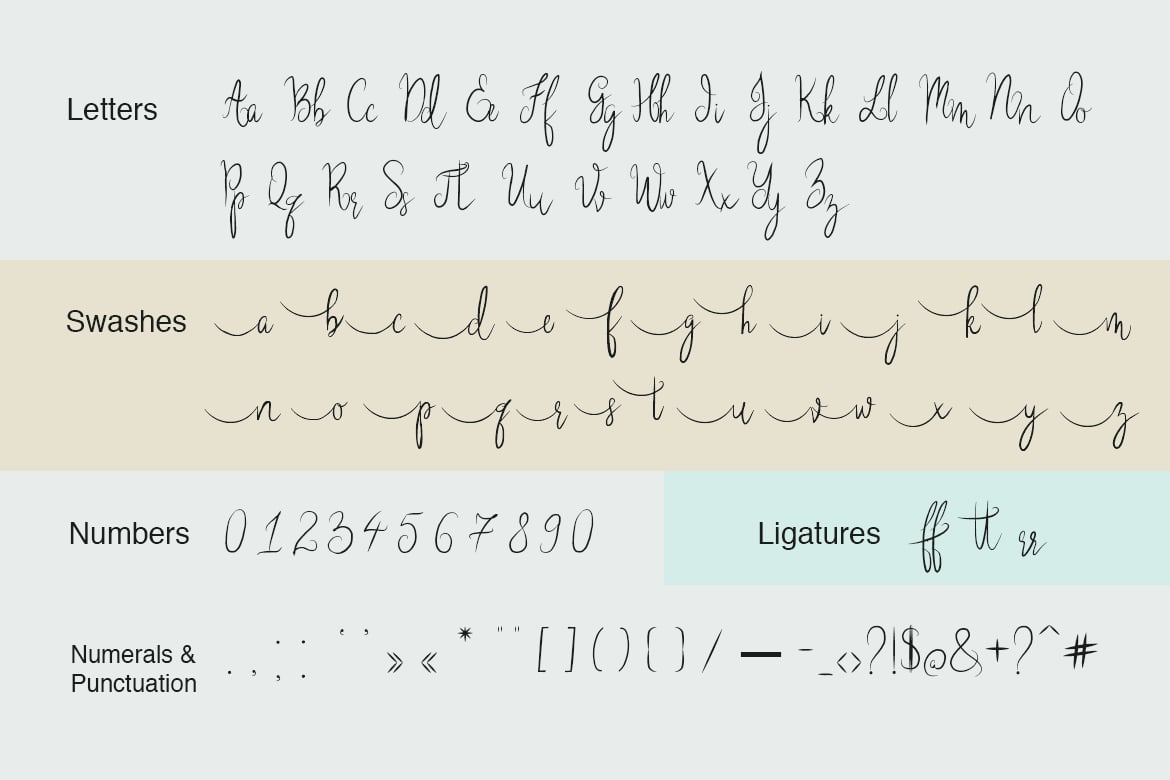 Letters Aa Bb Cc Dd Ee Ff Gg Hh Ii Jj Kk Ll Mm Nn Oo
Pp Qq Rr Ss Tt Uu Vv Ww Xx Yy Zz
Swashes a b c d e f g h i j k l m
n o p q r s t u v w x y z
Numbers 0 1 2 3 4 5 6 7 8 9 0
Ligatures ff tt rr
Numerals & Punctuation . , ; : ‘ ’ » « * " " [ ] ( ) { } / — - _ < > ? | $ @ & + ? ^ #